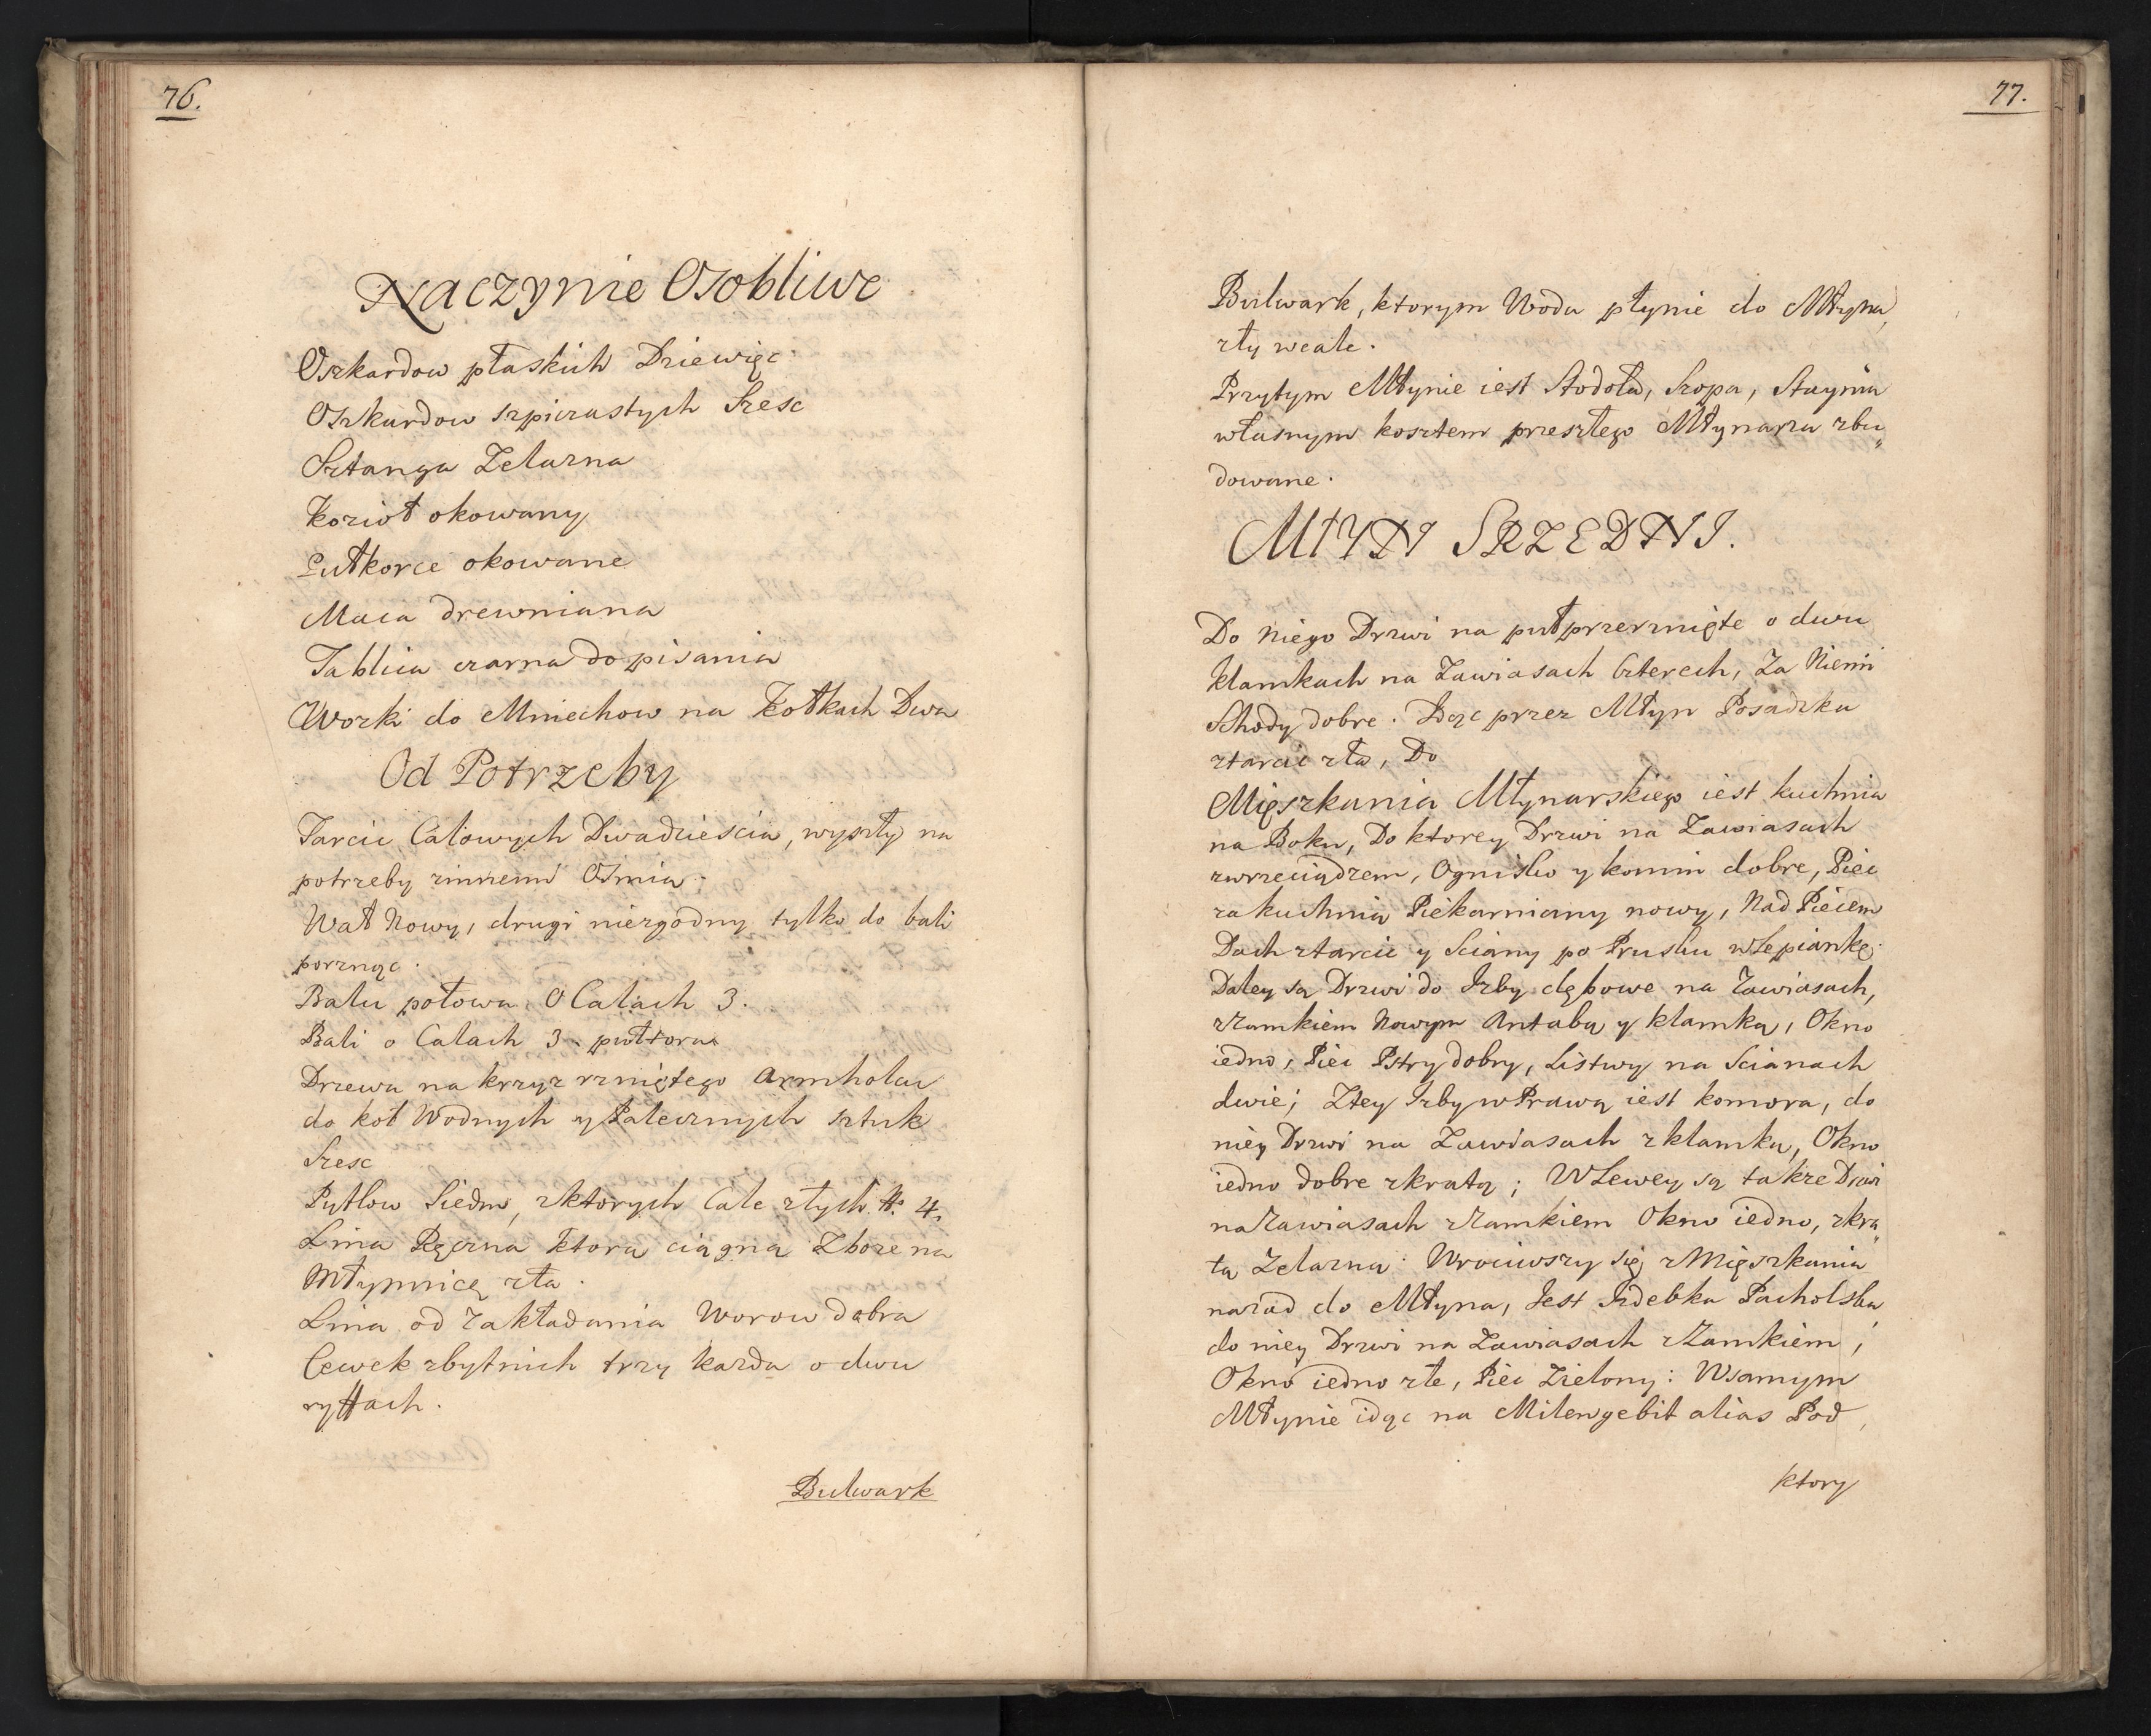 76.
Naczynie Osobliwe
Oszkardow płaskich Dziewięc
Oszkardow szpiczastych Szesc
Sztanga Zelazna
Kozioł okowany
Pułkorce okowane
Maca drewniana
Tablica czarna do pisania
Worki do Mniechow na Kołkach Dwa
Od Potrzeby
Tarcic Calowych Dwadziescia, wyszły na
potrzeby zinnemi Osmia.
Wał Nowy, drugi niezgodny tylko do bali
porznąc.
Balu połowa o Calach 3.
Bali o Calach 3. pułtora
Drzewa na krzyz rzniętego Armholcu
do koł Wodnych y Palecznych sztuk
Szesc
Pytlow Siedm, zktorych Cale złych N: 4.
Lina Ręczna ktora ciągną Zboze na
Młynnicę zła.
Lina od Zakładania Worow dobra
Cewek zbytnich trzy kazda o dwu
ryffach.
Bulwark
77.
Bulwark, ktorym Woda płynie do Młyna,
zły wcale.
Przytym Młynie iest Stodoła, Szopa, Staynia
własnym kosztem przeszłego Młynarza zbu„
dowane.
MŁYN SRZEDNI.
Do Niego Drzwi na pułprzerznięte o dwu
klamkach na Zawiasach Czterech, Za Niemi
Schody dobre. Idąc przez Młyn Posadzka
ztarcic zła, Do
Mięszkania Młynarskiego iest kuchnia
na Boku, Do ktorey Drzwi na Zawiasach
zwrzeciądzem, Ognisko y komin dobre, Piec
za kuchnią Piekarniany nowy, Nad Piecem
Dach ztarcic y Sciany po Prusku wLepiankę.
Daley są Drzwi do Izby dębowe na Zawiasach,
zZamkiem Nowym Antabą y klamką, Okno
iedno, Piec Pstry dobry, Listwy na Scianach
dwie; Ztey Izby wPrawą iest komora, do
niey Drzwi na Zawiasach zklamką, Okno
iedno dobre zkratą; WLewey są takze Drzwi
na Zawiasach zZamkiem Okno iedno, zkra„
tą Zelazną. Wrociwszy się zMięszkania
nazad do Młyna, Jest Izdebka Pacholska,
do niey Drzwi na Zawiasach zZamkiem,
Okno iedno złe, Piec Zielony: Wsamym
Młynie idąc na Milengebit alias Pod
ktory